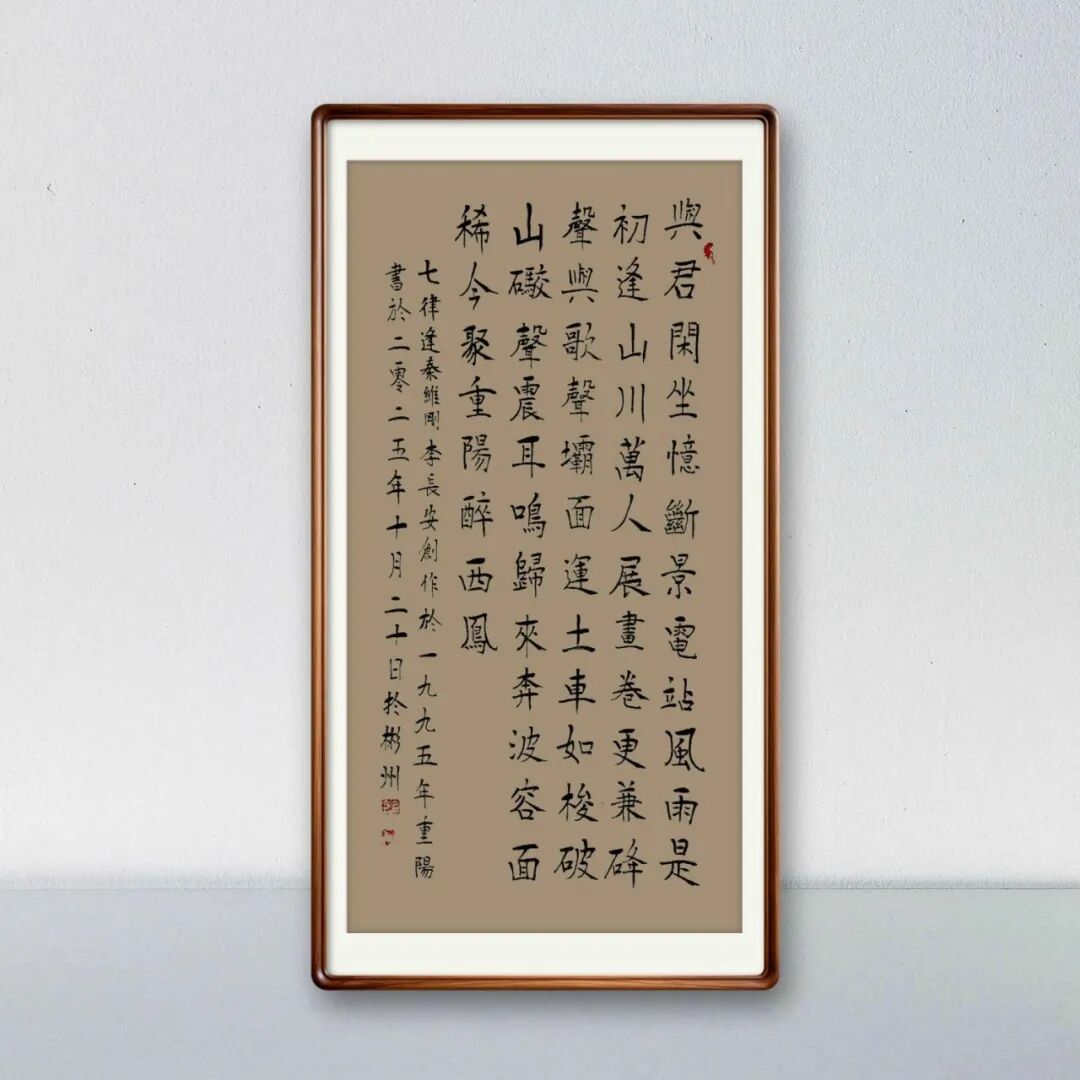 與君閑坐憶斷景電站風雨是
初逢山川萬人展畫卷更兼碎
聲與歌聲壩面運土車如梭破
山礮聲震耳鳴歸來奔波容面
稀今聚重陽醉西鳳
七律逢秦維剛李長安創作於一九九五年重陽
書於二零二五年十月二十日於彬州